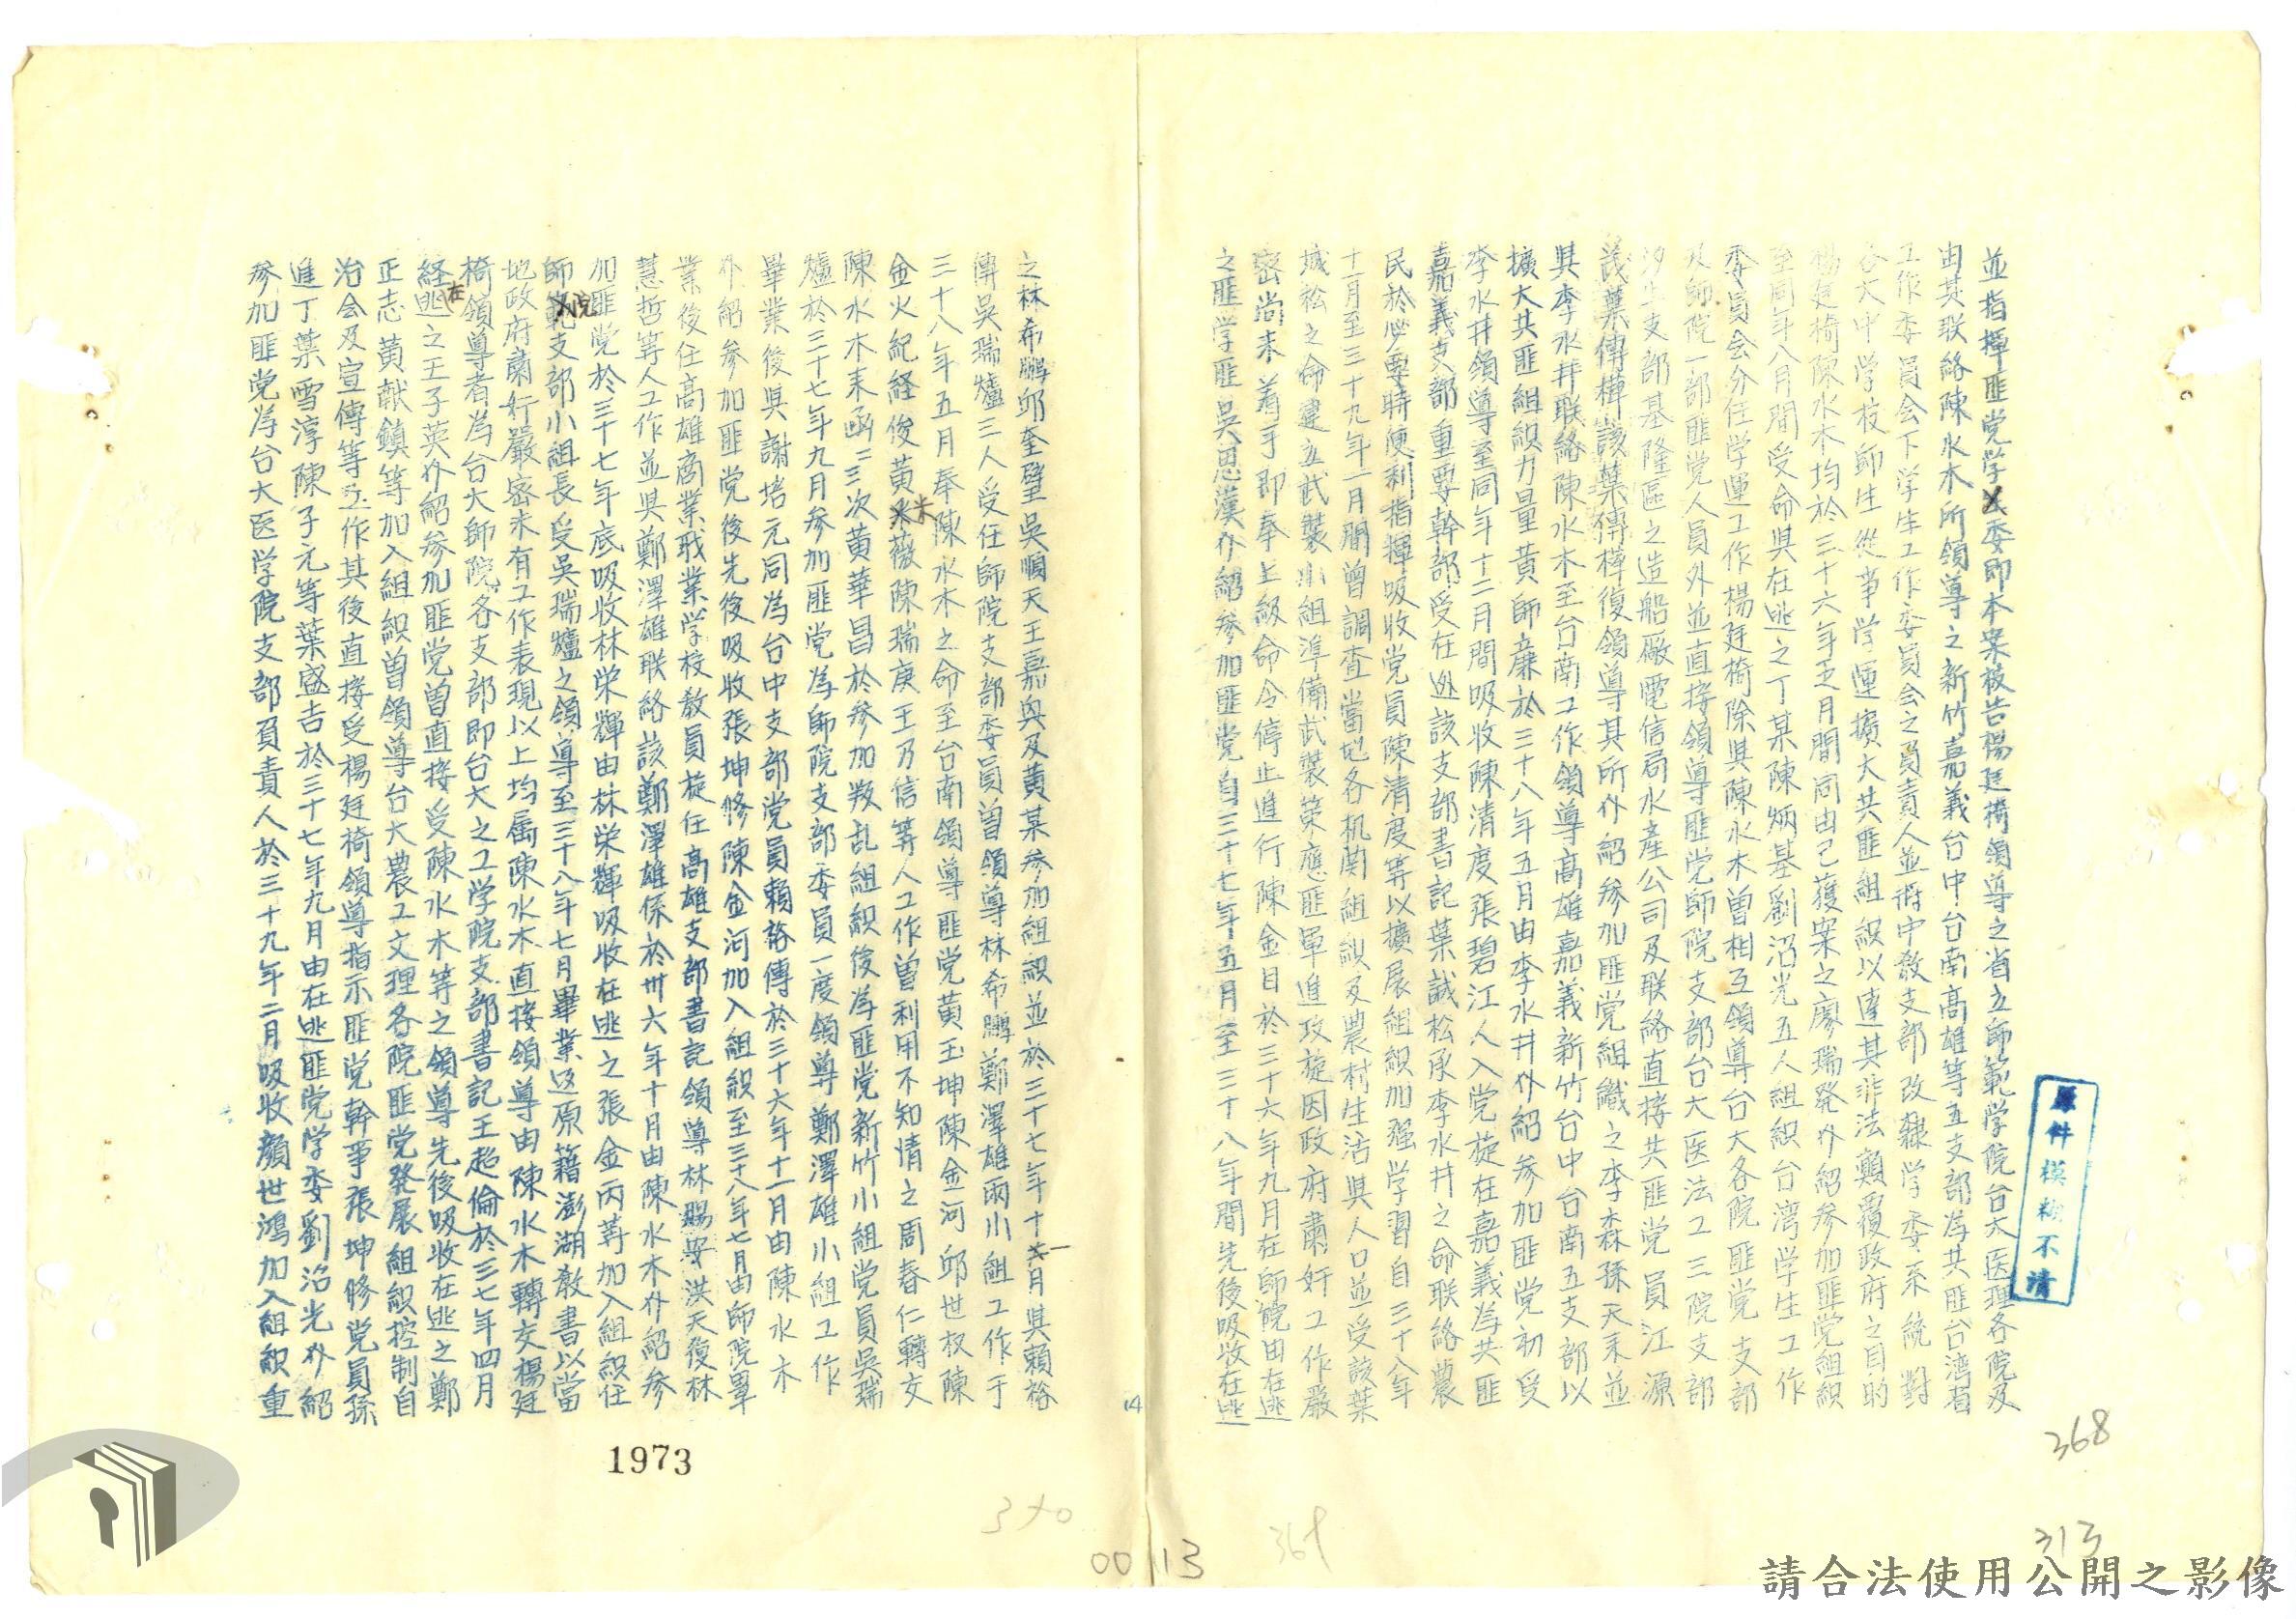 並指揮匪党学委即本案被告楊廷椅領導之省立師範学院台大医理各院及
由其联絡陳水木所領導之新竹嘉義台中台南高雄等五支部為共匪台湾省
工作委員会下学生工作委員会之負責人並將中教支部改隸学委系統對
各大中学校師生從事学運擴大共匪組織以達其非法顛覆政府之目的
楊廷椅陳水木均於三十六年五月間同由已獲案之廖瑞發介紹參加匪党組織
至同年八月間受命與在逃之丁某陳炳基劉沼光五人組織台湾学生工作
委員会分任学運工作楊廷椅除與陳水木曾相互領導台大各院匪党支部
及師院一部匪党人員外並直接領導匪党師院支部台大医法工三院支部
汐止支部基隆區之造船廠電信局水產公司及联絡直接共匪党員江源
茂葉傳樺該葉傳樺復領導其所介紹參加匪党組織之李森孫天来並
與李水井联絡陳水木至台南工作領導高雄嘉義新竹台中台南五支部以
擴大共匪組織力量黄師廉於三十八年五月由李水井介紹參加匪党初受
李水井領導至同年十二月間吸收陳清度張碧江人入党旋在嘉義為共匪
嘉義支部重要幹部受在逃該支部書記葉誠松承李水井之命联絡農
民於必要時便利指揮吸收党員陳清度等以擴展組織加強学習自三十八年
十一月至三十九年一月間曾調查當地各机関組織及農村生活與人口並受該葉
城松之命建立武裝小組準備武裝策應匪軍進攻旋因政府肅奸工作嚴
密尚未着手即奉上級命令停止進行陳金目於三十六年九月在師院由在逃
之匪学匪吳思漢介紹參加匪党自三十七年五月至三十八年間先後吸收在逃
之林希鵬邱奎璧吳順天王嘉與及黄某參加組織並於三十七年十一月與賴裕
傳吳瑞爐三人受任師院支部委員曾領導林希鵬鄭澤雄兩小組工作于
三十八年五月奉陳水木之命至台南領導匪党黄玉坤陳金河邱世权陳
金火紀経俊黄采薇陳瑞庚王乃信等人工作曾利用不知情之周春仁轉交
陳水木来函二三次黄華昌於參加叛乱組織後為匪党新竹小組党員吳瑞
爐於三十七年九月參加匪党為師院支部委員一度領導鄭澤雄小組工作
畢業後與謝培元同為台中支部党員賴裕傳於三十六年十一月由陳水木
介紹參加匪党後先後吸收張坤修陳金河加入組織至三十八年七月由師院畢
業後任高雄商業職業学校教員旋任高雄支部書記領導林賜安洪天復林
慧哲等人工作並與鄭澤雄联絡該鄭澤雄係於卅六年十月由陳水木介紹參
加匪党於三十七年底吸收林榮輝由林榮輝吸收在逃之張金丙等加入組織任
師院支部小組長受吳瑞爐之領導至三十八年七月畢業返原籍澎湖教書以當
地政府肅奸嚴密未有工作表現以上均屬陳水木直接領導由陳水木轉交楊廷
椅領導者為台大師院各支部即台大之工学院支部書記王超倫於三七年四月
経在逃之王子英介紹參加匪党曾直接受陳水木等之領導先後吸收在逃之鄭
正志黄献鎮等加入組織曾領導台大農工文理各院匪党發展組織控制自
治会及宣傳等工作其後直接受楊廷椅領導指示匪党幹事張坤修党員孫
進丁葉雪淳陳子元等葉盛吉於三十七年九月由在逃匪党学委劉沼光介紹
參加匪党為台大医学院支部負責人於三十九年二月吸收顏世鴻加入組織重
原件模糊不清
368
313
369
370
14
00113
1973
請合法使用公開之影像